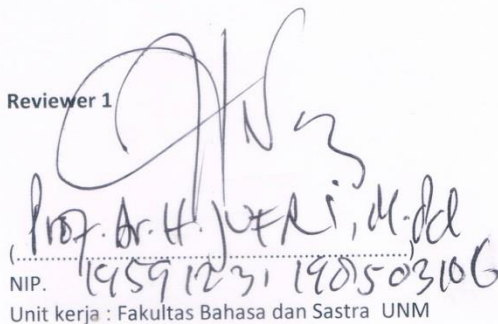 Reviewer 1
Prof. Dr. H. JUFRI, M.Pd
(..............................................................)
NIP. 19591231 198503106
Unit kerja : Fakultas Bahasa dan Sastra UNM